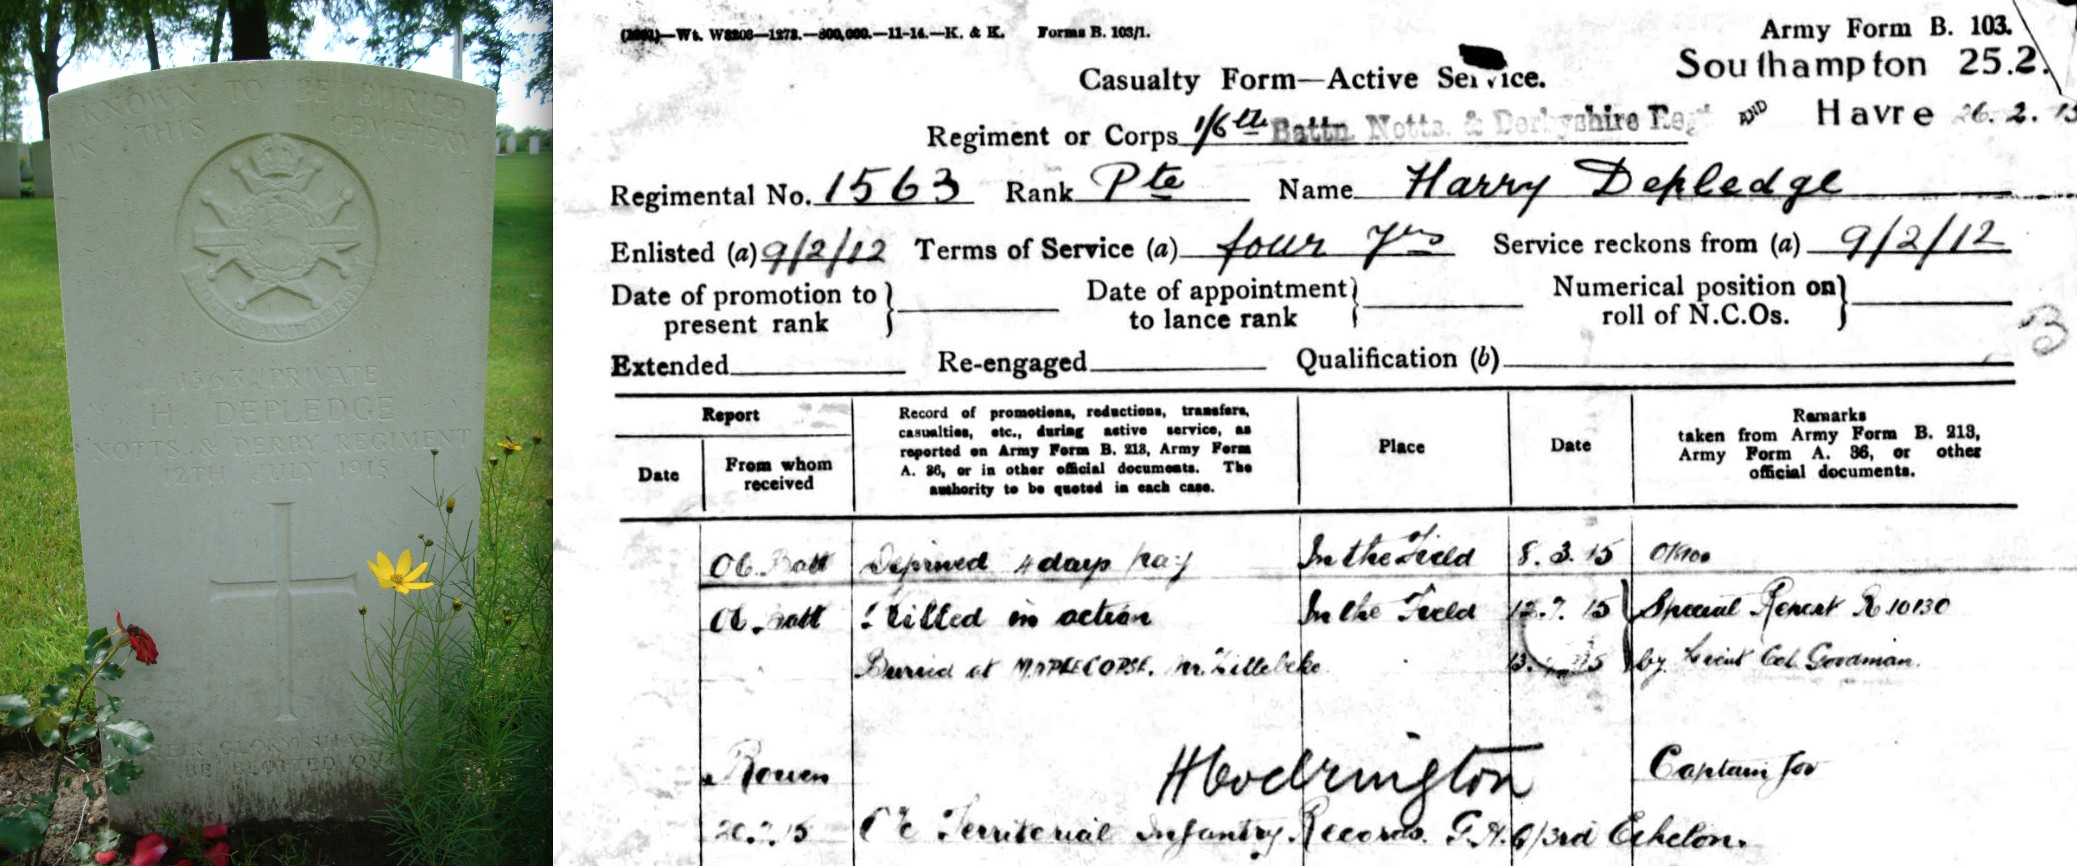 KNOWN TO BE BURIED
IN THIS CEMETERY
NOTTS AND DERBY
1563 PRIVATE
H. DEPLEDGE
NOTTS. & DERBY REGIMENT
12TH JULY 1915
THEIR GLORY SHALL
BE BLOTTED OUT
—Wt. W8208—1273.—300,000.—11-14.—K. & K. Forms B. 103/1.
Army Form B. 103.
Casualty Form—Active Service.
Southampton 25.2.
Regiment or Corps 1/6th Battn. Notts. & Derbyshire Regt AND Havre 26.2.15
Regimental No. 1563 Rank Pte Name Harry Depledge
Enlisted (a) 9/2/12 Terms of Service (a) four yrs Service reckons from (a) 9/2/12
Date of promotion to present rank } Date of appointment to lance rank } Numerical position on roll of N.C.Os. }
3
Extended Re-engaged Qualification (b)
Report
Date
From whom received
Record of promotions, reductions, transfers,
casualties, etc., during active service, as
reported on Army Form B. 213, Army Form
A. 36, or in other official documents. The
authority to be quoted in each case.
Place
Date
Remarks
taken from Army Form B. 213,
Army Form A. 36, or other
official documents.
OC. Batt Deprived 4 days pay In the Field 8.3.15
Batt Killed in action In the Field 12.7.15 Special Report R 10130
Buried at MAPLE COPSE. Nr. Zillebeke. by Lieut Col. Goodman.
Rouen Captain for
20.7.15 Territorial Infantry Records. G.H.Q/3rd Echelon.